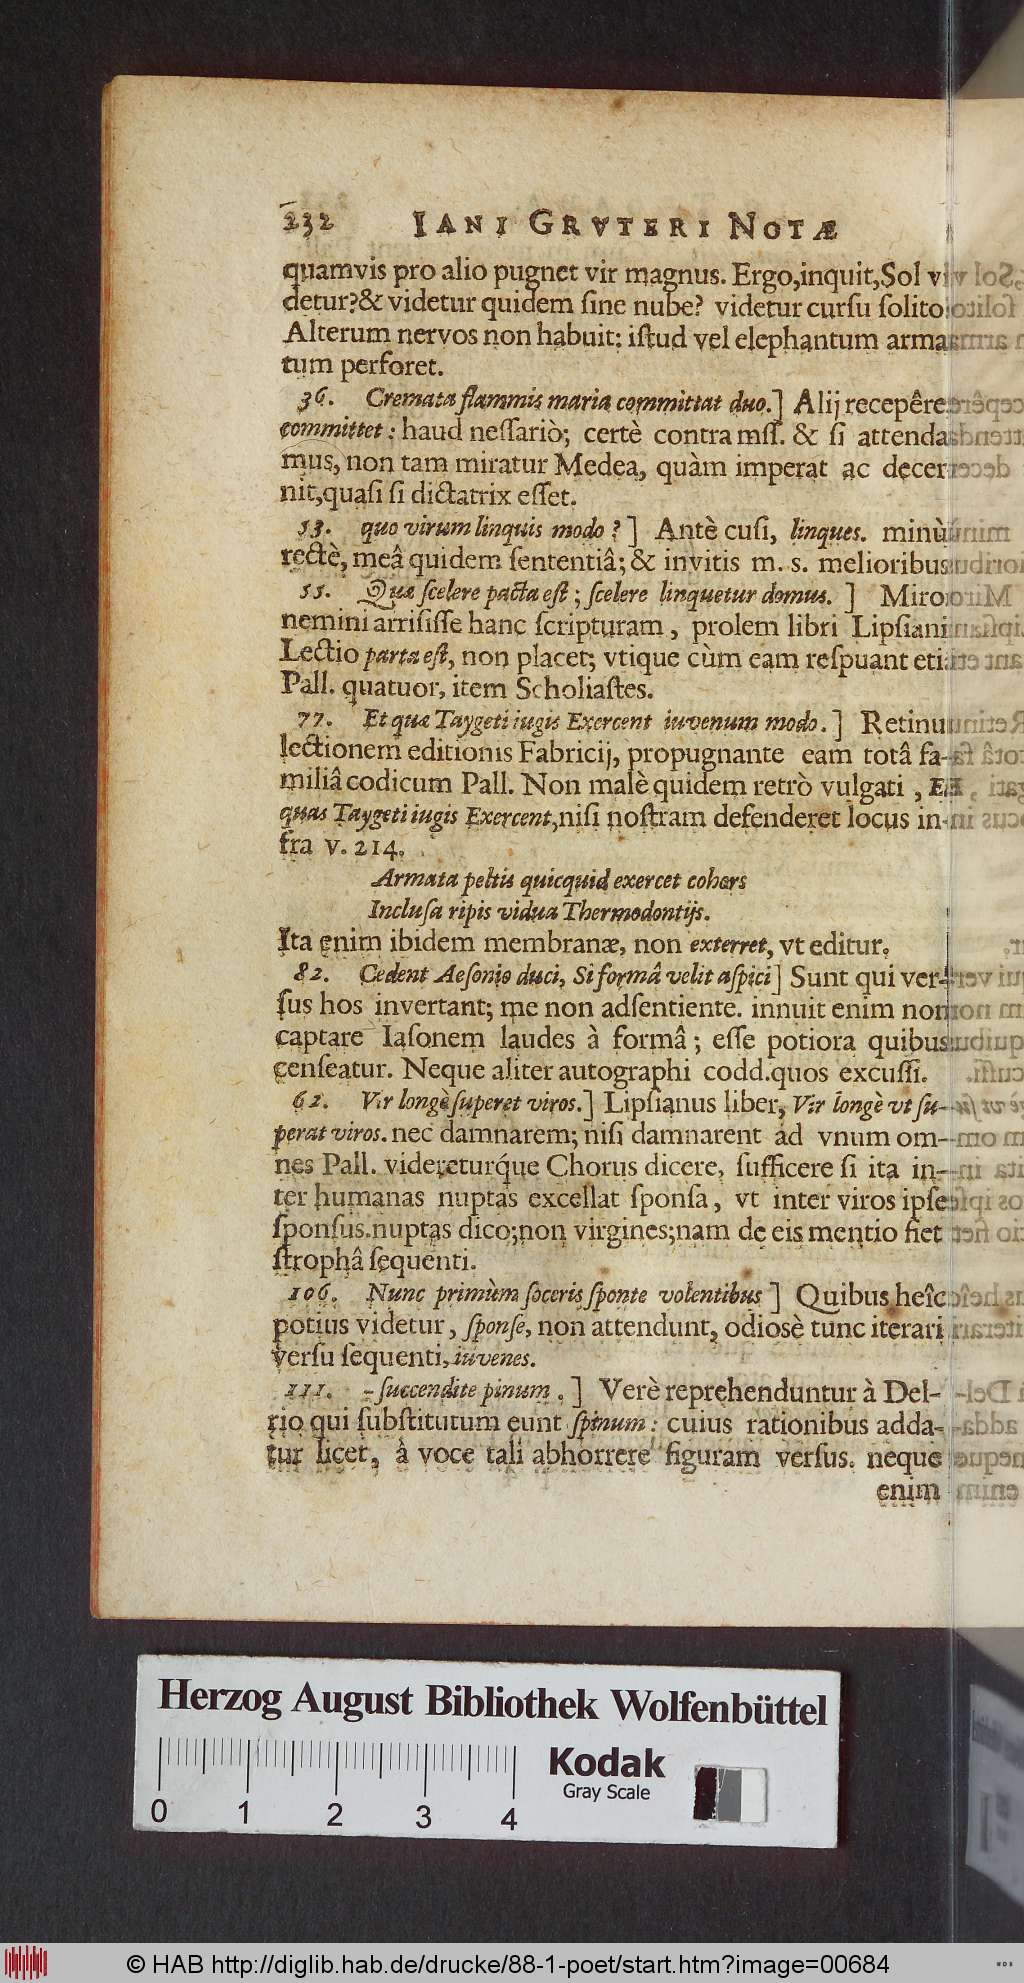 232 IANI GRVTERI NOTÆ
quamvis pro alio pugnet vir magnus. Ergo, inquit, Sol vi
detur? & videtur quidem ſine nube? videtur curſu ſolito:
Alterum nervos non habuit: iſtud vel elephantum arma
tum perforet.
36. Cremata flammis maria committat duo.] Alij recepêre
committet: haud neſſariò; certè contra mſſ. & ſi attenda
mus, non tam miratur Medea, quàm imperat ac decer
nit, quaſi ſi dictatrix eſſet.
53. quo virum linquis modo?] Antè cuſi, linques. minùs
rectè, meâ quidem ſententiâ; & invitis m. s. melioribus
55. Quæ ſcelere pacta eſt; ſcelere linquetur domus.] Miror
nemini arriſiſſe hanc ſcripturam, prolem libri Lipſiani
Lectio parta eſt, non placet; vtique cùm eam reſpuant
Pall. quatuor, item Scholiaſtes.
77. Et quæ Taygeti iugis Exercent iuvenum modo.] Retinui
lectionem editionis Fabricij, propugnante eam totâ fa-
miliâ codicum Pall. Non malè quidem retrò vulgati, Et
quas Taygeti iugis Exercent, niſi noſtram defenderet locus in-
fra v. 214.
Armata peltis quicquid exercet cohors
Incluſa ripis vidua Thermodontijs.
Ita enim ibidem membranæ, non exterret, vt editur.
82. Cedent Aeſonio duci, Si formâ velit aſpici] Sunt qui ver-
ſus hos invertant; me non adſentiente. innuit enim non
captare Iaſonem laudes à formâ; eſſe potiora quibus
cenſeatur. Neque aliter autographi codd. quos excuſſi.
62. Vir longè ſuperet viros.] Lipſianus liber, Vir longè vt ſu-
perat viros. nec damnarem; niſi damnarent ad vnum om-
nes Pall. videreturq́ue Chorus dicere, ſufficere ſi ita in-
ter humanas nuptas excellat ſponſa, vt inter viros ipſe
ſponſus. nuptas dico; non virgines; nam de eis mentio fiet
ſtrophâ ſequenti.
106. Nunc primùm ſoceris ſponte volentibus] Quibus heîc
potius videtur, ſponſe, non attendunt, odiosè tunc iterari
verſu ſequenti, iuvenes.
111. - ſuccendite pinum.] Verè reprehenduntur à Del-
rio qui ſubſtitutum eunt ſpinum: cuius rationibus adda-
tur licet, à voce tali abhorrere figuram verſus. neque
enim
Herzog August Bibliothek Wolfenbüttel
Kodak
Gray Scale
0 1 2 3 4
© HAB http://diglib.hab.de/drucke/88-1-poet/start.htm?image=00684